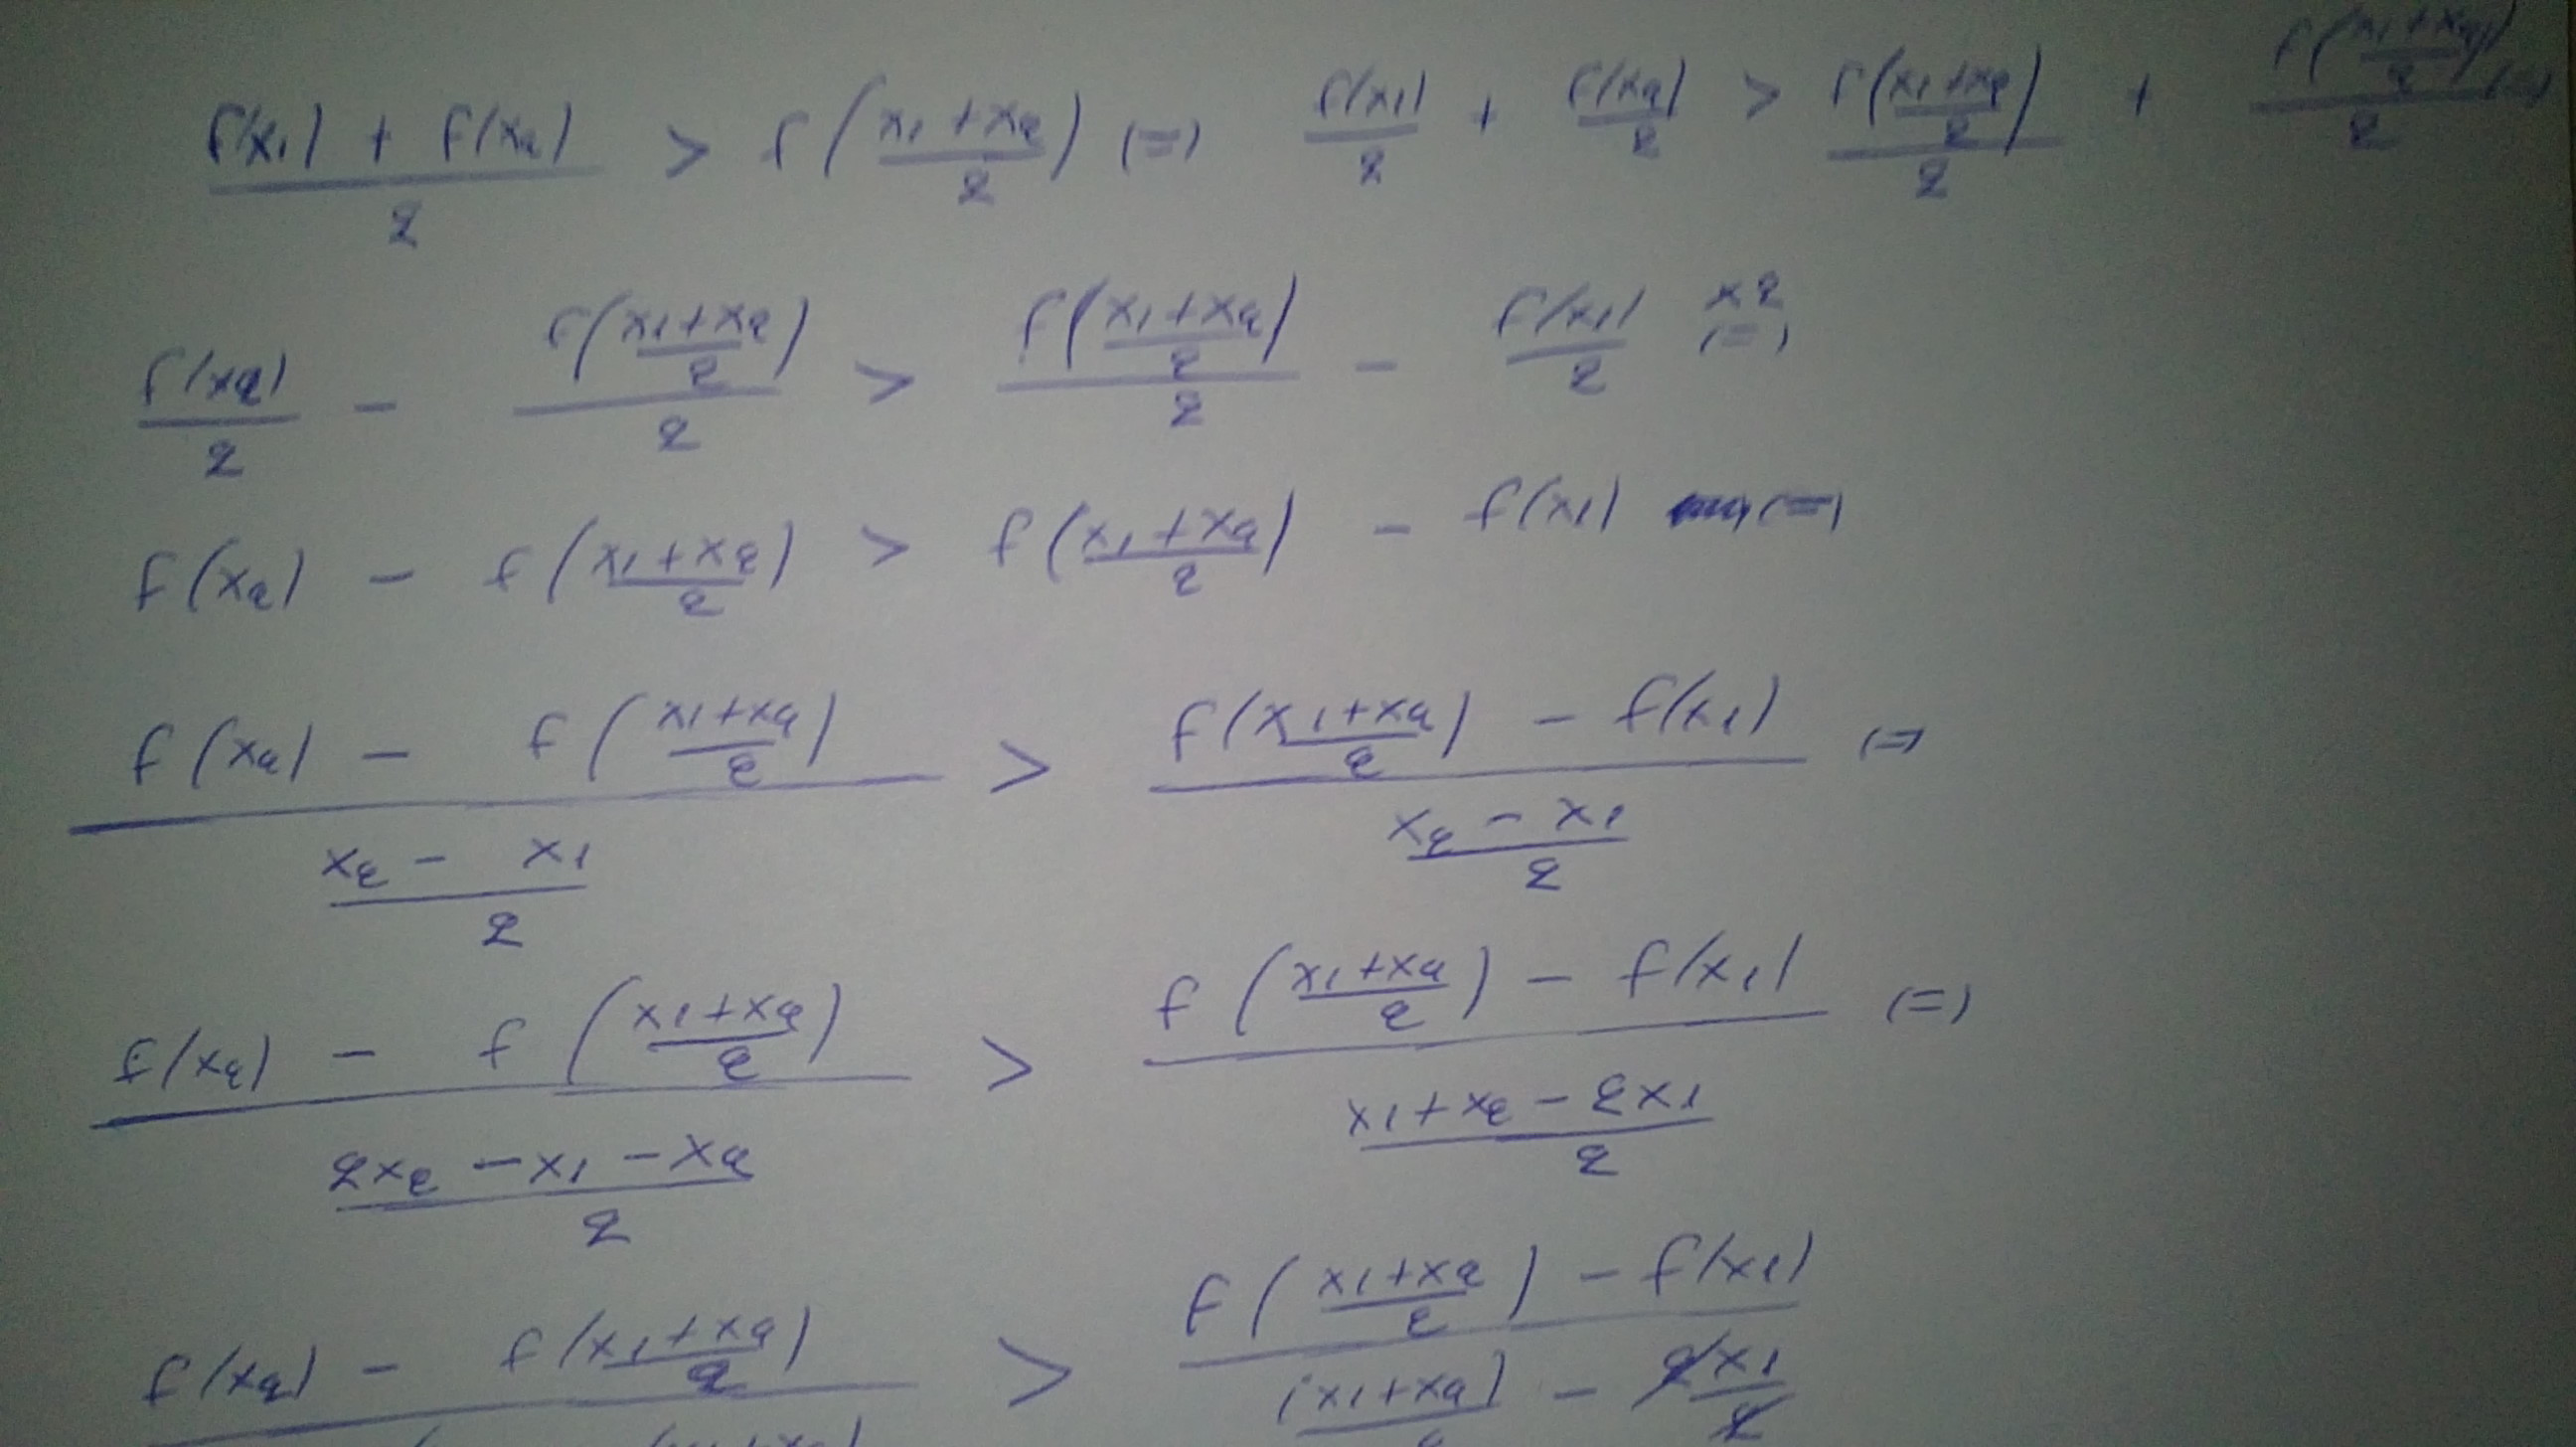 (f(x₁) + f(x₂))/2 > f((x₁+x₂)/2) (=) f(x₁)/2 + f(x₂)/2 > f((x₁+x₂)/2)/2 + f((x₁+x₂)/2)/2 (=)
f(x₂)/2 - f((x₁+x₂)/2)/2 > f((x₁+x₂)/2)/2 - f(x₁)/2 x2 (=)
f(x₂) - f((x₁+x₂)/2) > f((x₁+x₂)/2) - f(x₁) (=)
(f(x₂) - f((x₁+x₂)/2))/((x₂ - x₁)/2) > (f((x₁+x₂)/2) - f(x₁))/((x₂ - x₁)/2) (=)
(f(x₂) - f((x₁+x₂)/2))/((2x₂ - x₁ - x₂)/2) > (f((x₁+x₂)/2) - f(x₁))/((x₁+x₂ - 2x₁)/2) (=)
f(x₂) - f((x₁+x₂)/2) > (f((x₁+x₂)/2) - f(x₁))/((x₁+x₂) - 2x₁/2)